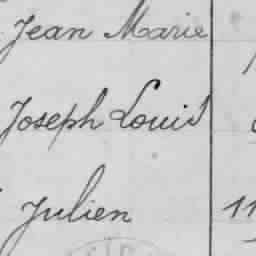 Jean Marie
Joseph Louis
Julien 11